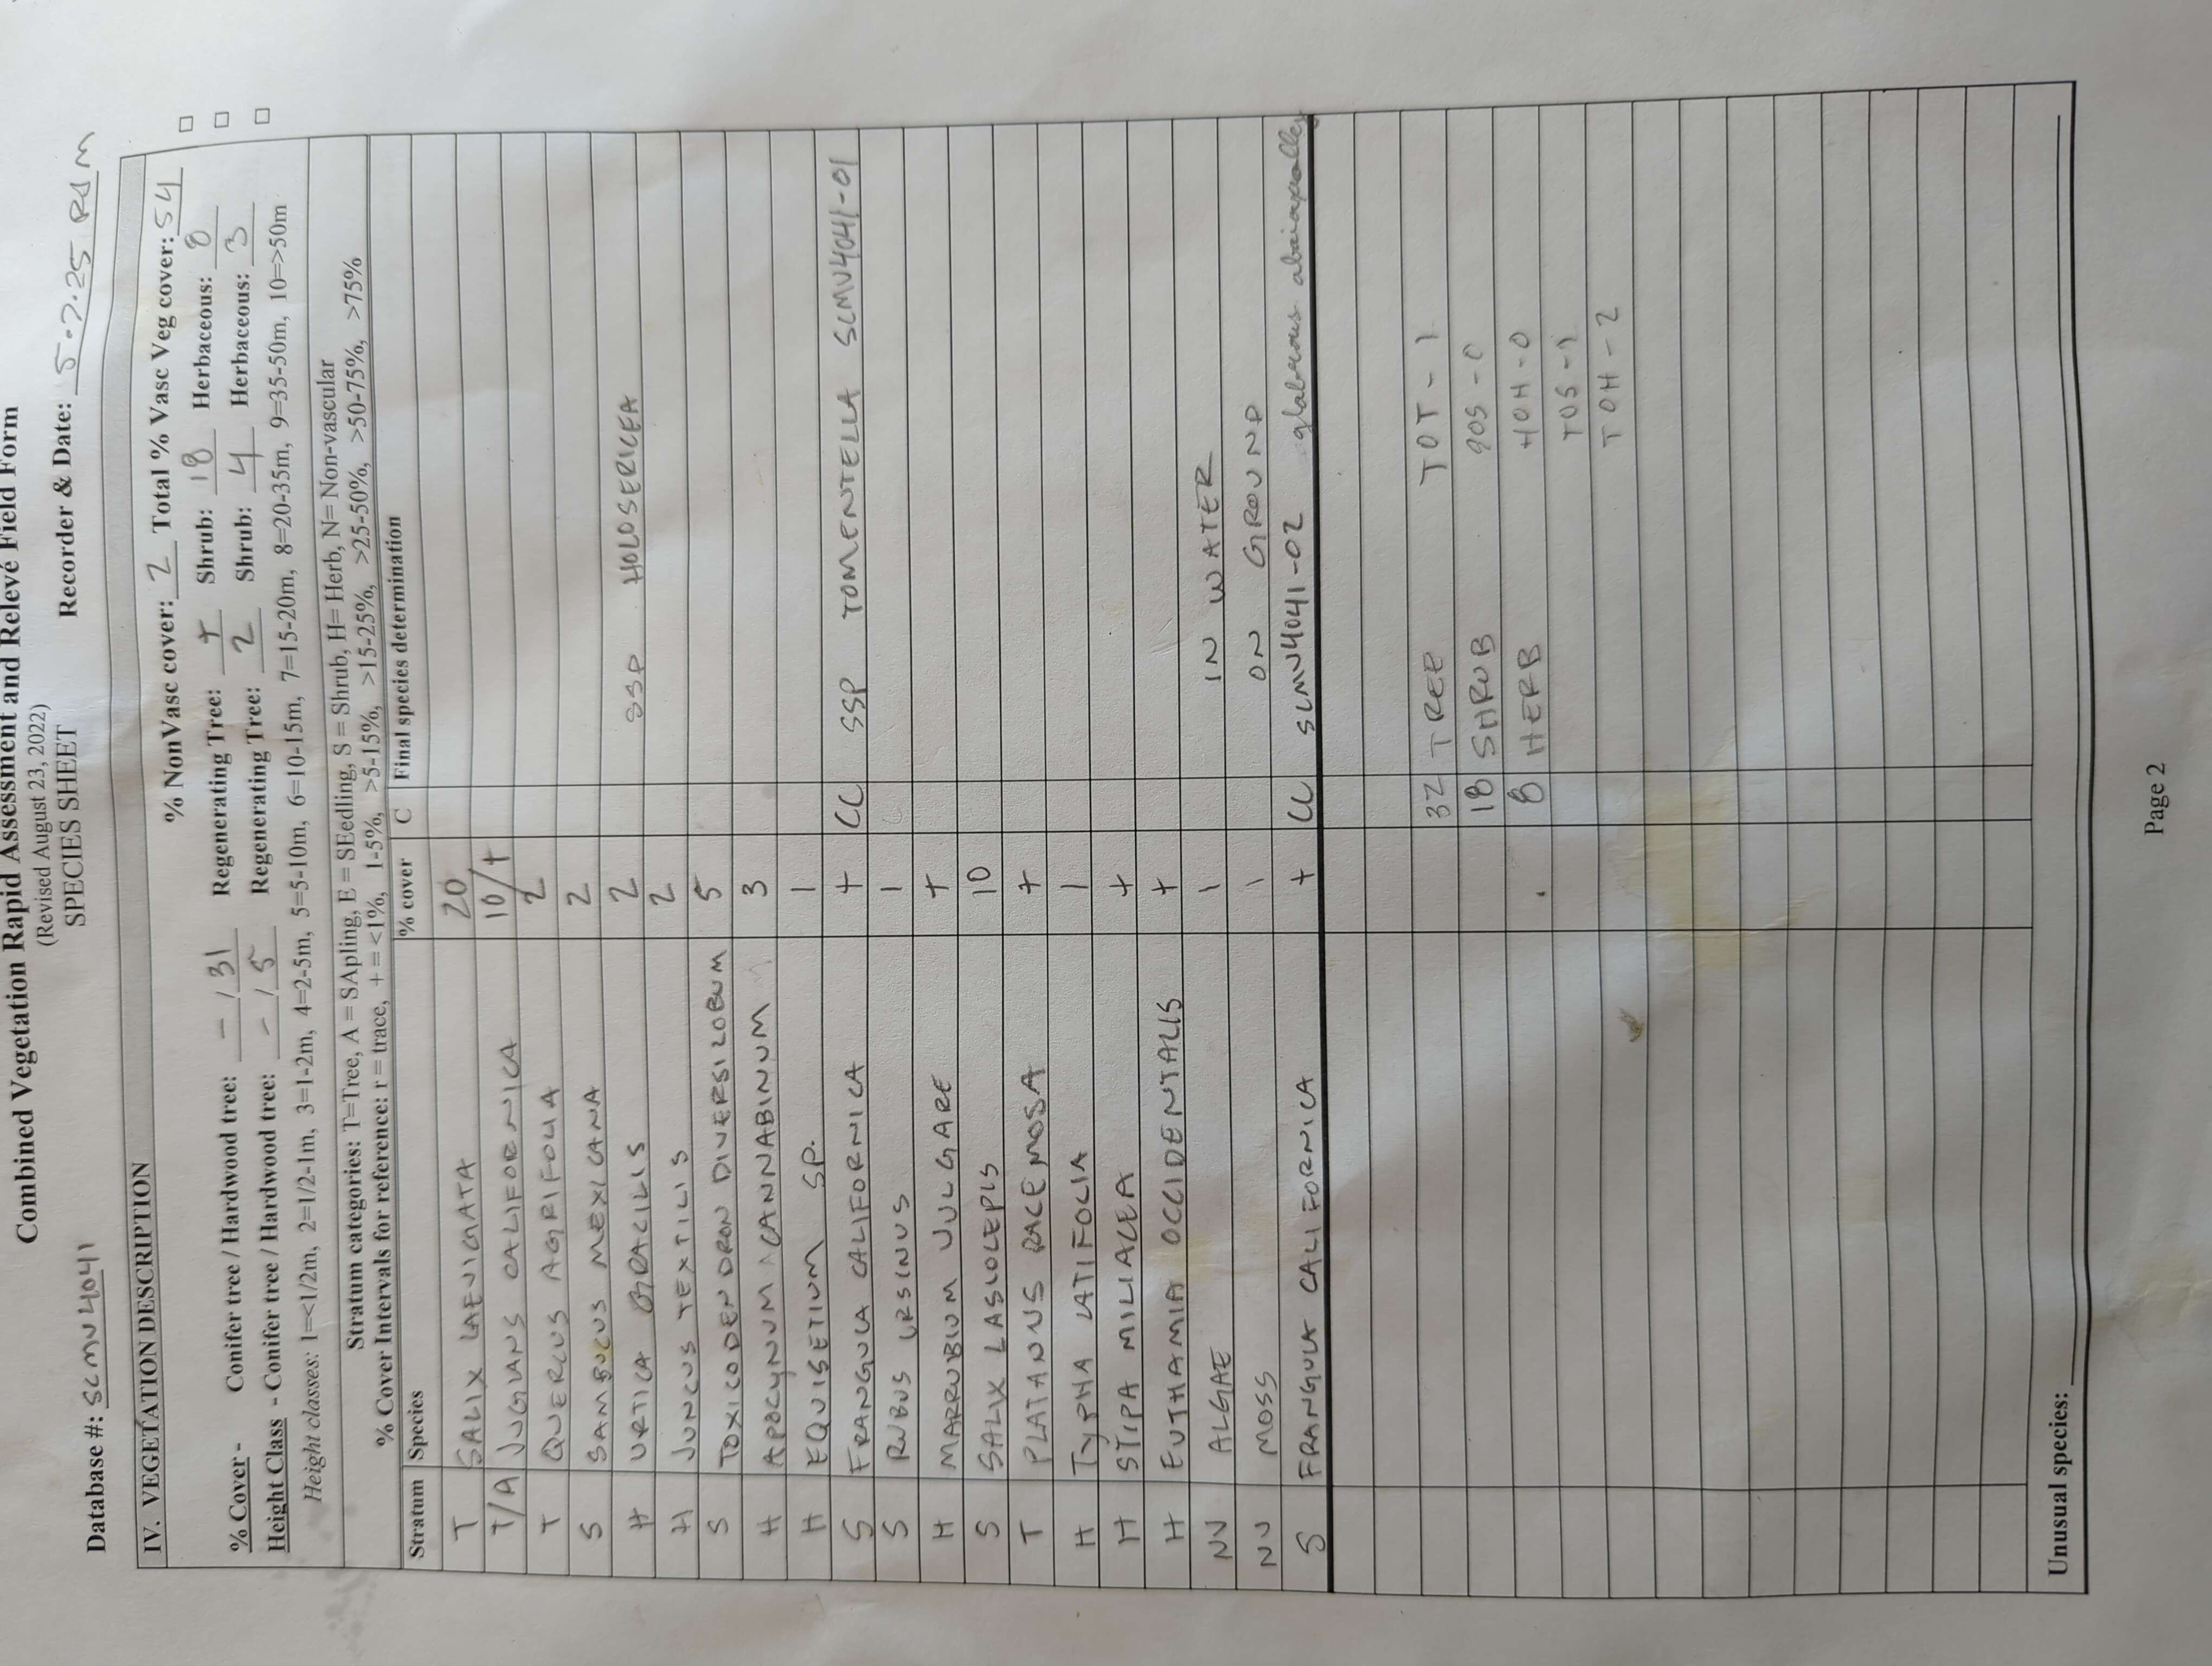 Combined Vegetation Rapid Assessment and Relevé Field Form
(Revised August 23, 2022)
SPECIES SHEET
Database #: SCMV4041 Recorder & Date: 5.7.25 RJM
IV. VEGETATION DESCRIPTION
% NonVasc cover: 2 Total % Vasc Veg cover: 54
% Cover - Conifer tree / Hardwood tree: - / 31 Regenerating Tree: + Shrub: 18 Herbaceous: 8
Height Class - Conifer tree / Hardwood tree: - / 5 Regenerating Tree: 2 Shrub: 4 Herbaceous: 3
Height classes: 1=<1/2m, 2=1/2-1m, 3=1-2m, 4=2-5m, 5=5-10m, 6=10-15m, 7=15-20m, 8=20-35m, 9=35-50m, 10=>50m
Stratum categories: T=Tree, A = SApling, E = SEedling, S = Shrub, H= Herb, N= Non-vascular
% Cover Intervals for reference: r = trace, + = <1%, 1-5%, >5-15%, >15-25%, >25-50%, >50-75%, >75%
Stratum Species % cover C Final species determination
T SALIX LAEVIGATA 20
T/A JUGLANS CALIFORNICA 10/+
T QUERCUS AGRIFOLIA 2
S SAMBUCUS MEXICANA 2
H URTICA GRACILIS 2 SSP HOLOSERICEA
H JUNCUS TEXTILIS 2
S TOXICODENDRON DIVERSILOBUM 5
H APOCYNUM CANNABINUM 3
H EQUISETIUM SP. 1
S FRANGULA CALIFORNICA + CC SSP TOMENTELLA SCMV4041-01
S RUBUS URSINUS 1
H MARRUBIUM VULGARE +
S SALIX LASIOLEPIS 10
T PLATANUS RACEMOSA +
H TYPHA LATIFOLIA 1
H STIPA MILIACEA +
H EUTHAMIA OCCIDENTALIS +
NV ALGAE 1 IN WATER
NV MOSS 1 ON GROUND
S FRANGULA CALIFORNICA + CC SCMV4041-02 glabrous
32 TREE TOT - 1
18 SHRUB SOS - 0
8 HERB HOH - 0
TOS - 1
TOH - 2
Unusual species:
Page 2